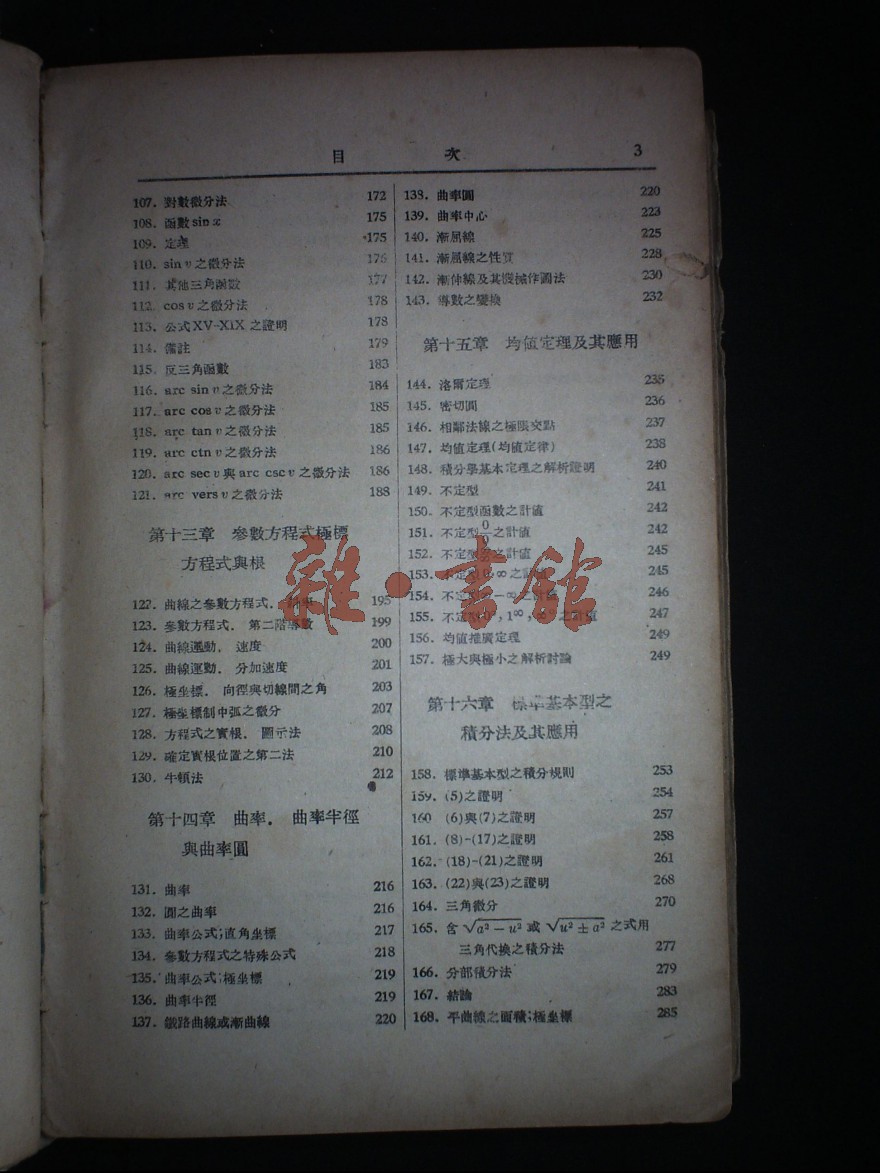 目 次 3
107. 對數微分法 172
108. 函數 sin x 175
109. 定理 175
110. sin v 之微分法 176
111. 其他三角函數 177
112. cos v 之微分法 178
113. 公式 XV-XIX 之證明 178
114. 備註 179
115. 反三角函數 183
116. arc sin v 之微分法 184
117. arc cos v 之微分法 185
118. arc tan v 之微分法 185
119. arc ctn v 之微分法 186
120. arc sec v 與 arc csc v 之微分法 186
121. arc vers v 之微分法 188
第十三章 參數方程式極標
方程式與根
122. 曲線之參數方程式. 195
123. 參數方程式. 第二階導數 199
124. 曲線運動. 速度 200
125. 曲線運動. 分加速度 201
126. 極坐標. 向徑與切線間之角 203
127. 極坐標制中弧之微分 207
128. 方程式之實根. 圖示法 208
129. 確定實根位置之第二法 210
130. 牛頓法 212
第十四章 曲率. 曲率半徑
與曲率圓
131. 曲率 216
132. 圓之曲率 216
133. 曲率公式;直角坐標 217
134. 參數方程式之特殊公式 218
135. 曲率公式;極坐標 219
136. 曲率半徑 219
137. 鐵路曲線或漸曲線 220
138. 曲率圓 220
139. 曲率中心 223
140. 漸屈線 225
141. 漸屈線之性質 228
142. 漸伸線及其機械作圖法 230
143. 導數之變換 232
第十五章 均值定理及其應用
144. 洛爾定理 235
145. 密切圓 236
146. 相鄰法線之極限交點 237
147. 均值定理(均值定律) 238
148. 積分學基本定理之解析證明 240
149. 不定型 241
150. 不定型函數之計值 242
151. 不定型 0/0 之計值 242
152. 不定型 之計值 245
153. 不定型 0·∞ 之計值 245
154. 不定型 ∞−∞ 之計值 246
155. 不定型 0⁰, 1^∞, ∞⁰ 之計值 247
156. 均值推廣定理 249
157. 極大與極小之解析討論 249
第十六章 標準基本型之
積分法及其應用
158. 標準基本型之積分規則 253
159. (5)之證明 254
160 (6)與(7)之證明 257
161. (8)-(17)之證明 258
162. (18)-(21)之證明 261
163. (22)與(23)之證明 268
164. 三角微分 270
165. 含 √(a² − u²) 或 √(u² ± a²) 之式用
三角代換之積分法 277
166. 分部積分法 279
167. 結論 283
168. 平曲線之面積;極坐標 285
雜·書館